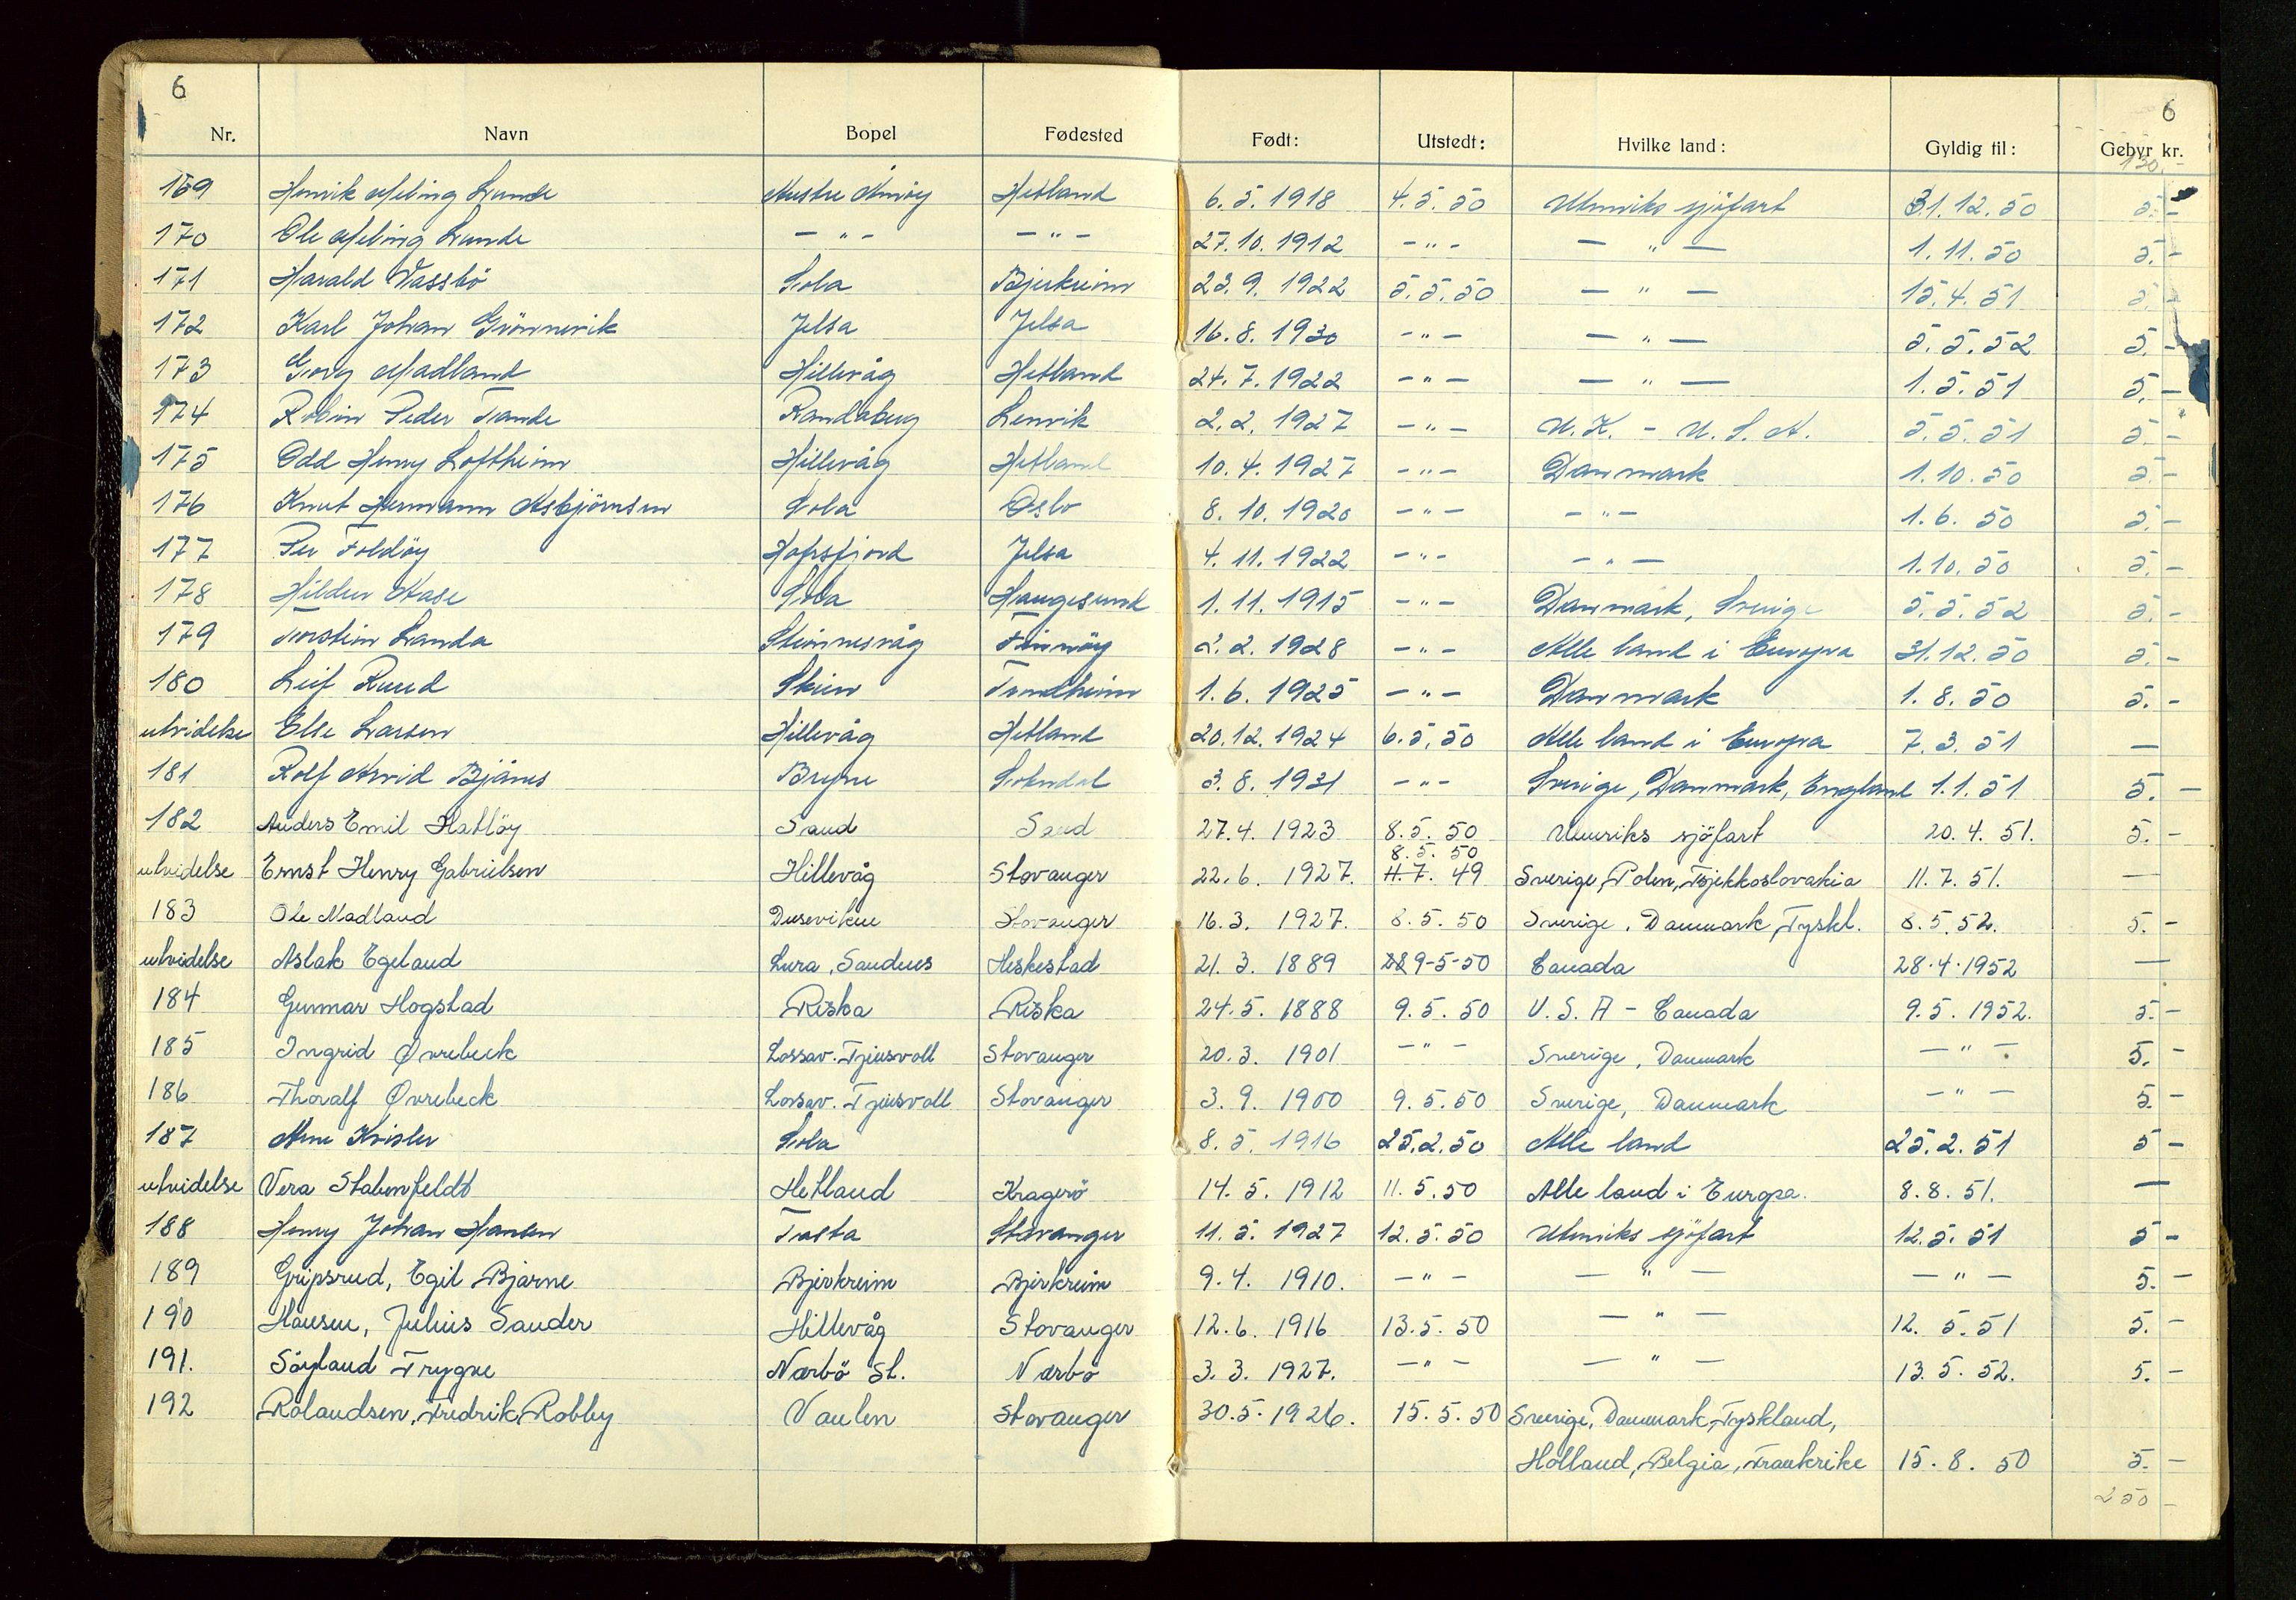 6 6
Nr. Navn Bopel Fødested Født: Utstedt: Hvilke land: Gyldig til: Gebyr kr.
130.-
169 Henrik Meling Lunde Austre Åmöy Hetland 6.5.1918 4.5.50 Utenriks sjöfart 31.12.50 5.-
170 Ole Meling Lunde - " - - " - 27.10.1912 - " - - " - 1.11.50 5.-
171 Harald Vassbö Sola Bjerkreim 23.9.1922 5.5.50 - " - 15.4.51 5.-
172 Karl Johan Grönnevik Jelsa Jelsa 16.8.1930 - " - - " - 5.5.52 5.-
173 Georg Madland Hillevåg Hetland 24.7.1922 - " - - " - 1.5.51 5.-
174 Robin Peder Tande Randaberg Lenvik 2.2.1927 - " - U.K. - U.S.A. 5.5.51 5.-
175 Odd Henry Loftheim Hillevåg Hetland 10.4.1927 - " - Danmark 1.10.50 5.-
176 Knut Hermann Asbjörnsen Sola Oslo 8.10.1920 - " - - " - 1.6.50 5.-
177 Per Foldöy Hafrsfjord Jelsa 4.11.1922 - " - - " - 1.10.50 5.-
178 Hildur Aase Sola Haugesund 1.11.1915 - " - Danmark, Sverige 5.5.52 5.-
179 Torstein Landa Steinnesvåg Finnöy 2.2.1928 - " - Alle land i Europa 31.12.50 5.-
180 Leif Ruud Skien Trondheim 1.6.1925 - " - Danmark 1.8.50 5.-
utvidelse Else Larsen Hillevåg Hetland 20.12.1924 6.5.50 Alle land i Europa 7.3.51 —
181 Rolf Arvid Bjånes Bryne Sokndal 3.8.1931 - " - Sverige, Danmark, England 1.1.51 5.-
182 Anders Emil Hatlöy Sand Sand 27.4.1923 8.5.50 Utenriks sjöfart 20.4.51. 5.-
8.5.50
utvidelse Ernst Henry Gabrielsen Hillevåg Stavanger 22.6.1927. 11.7.49 Sverige, Polen, Tsjekkoslovakia 11.7.51. —
183 Ole Madland Duseviken Stavanger 16.3.1927. 8.5.50 Sverige, Danmark, Tyskl. 8.5.52. 5.-
utvidelse Aslak Egeland Lura, Sandnes Heskestad 21.3.1889 9-5-50 Canada 28.4.1952 —
184 Gunnar Hogstad Riska Riska 24.5.1888 9.5.50 U.S.A - Canada 9.5.1952. 5.-
185 Ingrid Øvrebeck Lassav. Tjensvoll Stavanger 20.3.1901 - " - Sverige, Danmark - " - 5.-
186 Thoralf Øvrebeck Lassav. Tjensvoll Stavanger 3.9.1900 9.5.50 Sverige, Danmark - " - 5.-
187 Arne Sola 8.5.1916 25.2.50 Alle land 25.2.51 5-
utvidelse Vera Stabenfeldt Hetland Kragerö 14.5.1912 11.5.50 Alle land i Europa. 8.8.51. —
188 Henry Johan Hansen Tasta Stavanger 11.5.1927 12.5.50 Utenriks sjöfart 12.5.51 5-
189 Gripsrud, Egil Bjarne Bjerkreim Bjerkreim 9.4.1910. - " - - " - - " - 5.-
190 Hansen, Julius Sander Hillevåg Stavanger 12.6.1916 13.5.50 - " - 12.5.51 5.-
191. Söyland Trygve Nærbö St. Nærbö 3.3.1927. - " - - " - 13.5.52. 5.-
192 Rolandsen, Fredrik Robby Vaulen Stavanger 30.5.1926. 15.5.50 Sverige, Danmark, Tyskland,
Holland, Belgia, Frankrike 15.8.50 5.-
250-